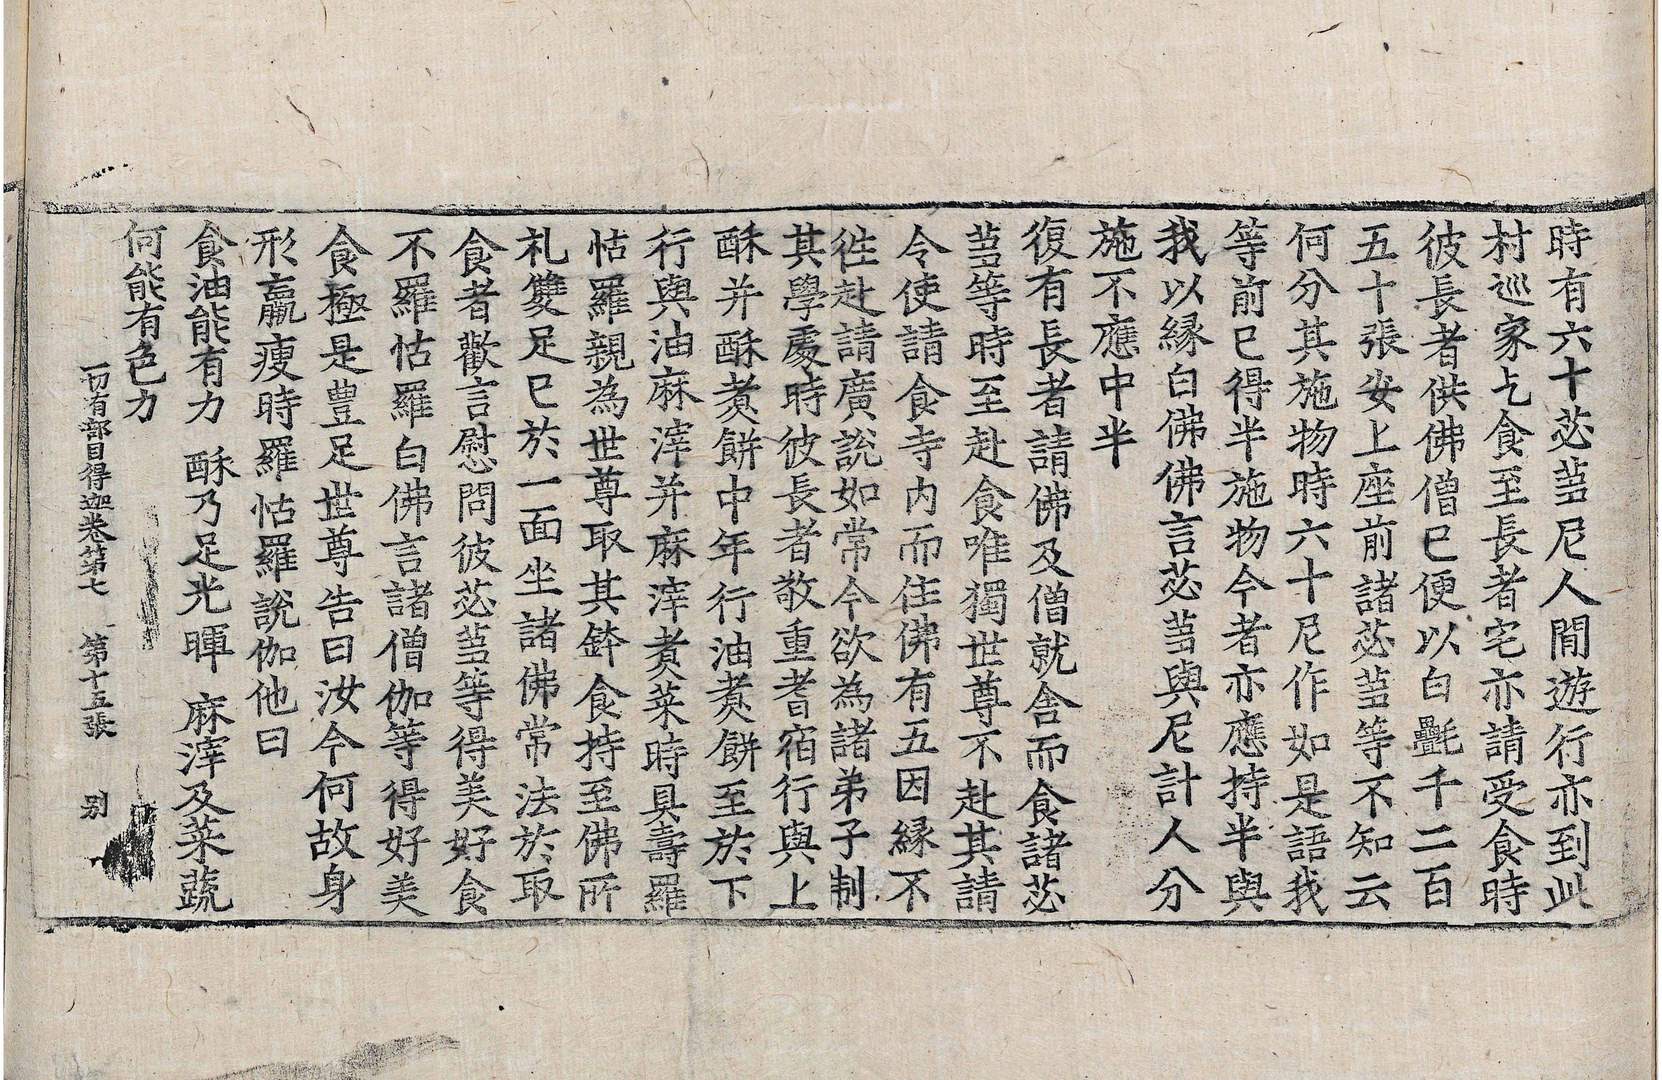 時有六十苾蒭尼人間遊行亦到此
村巡家乞食至長者宅亦請受食時
彼長者供佛僧已便以白㲲千二百
五十張安上座前諸苾蒭等不知云
何分其施物時六十尼作如是語我
等前已得半施物今者亦應持半與
我以縁白佛佛言苾蒭與尼計人分
施不應中半
復有長者請佛及僧就舍而食諸苾
蒭等時至赴食唯獨世尊不赴其請
令使請食寺内而住佛有五因縁不
徃赴請廣說如常今欲為諸弟子制
其學處時彼長者敬重耆宿行與上
酥并酥煑餅中年行油煑餅至於下
行與油麻滓并麻滓煑菜時具壽羅
怙羅親為世尊取其鉢食持至佛所
礼雙足已於一面坐諸佛常法於取
食者歡言慰問彼苾蒭等得美好食
不羅怙羅白佛言諸僧伽等得好美
食極是豊足世尊告曰汝今何故身
形羸瘦時羅怙羅說伽他曰
食油能有力　酥乃足光暉　麻滓及菜蔬
何能有色力
一切有部目得迦卷第七　第十五張　别